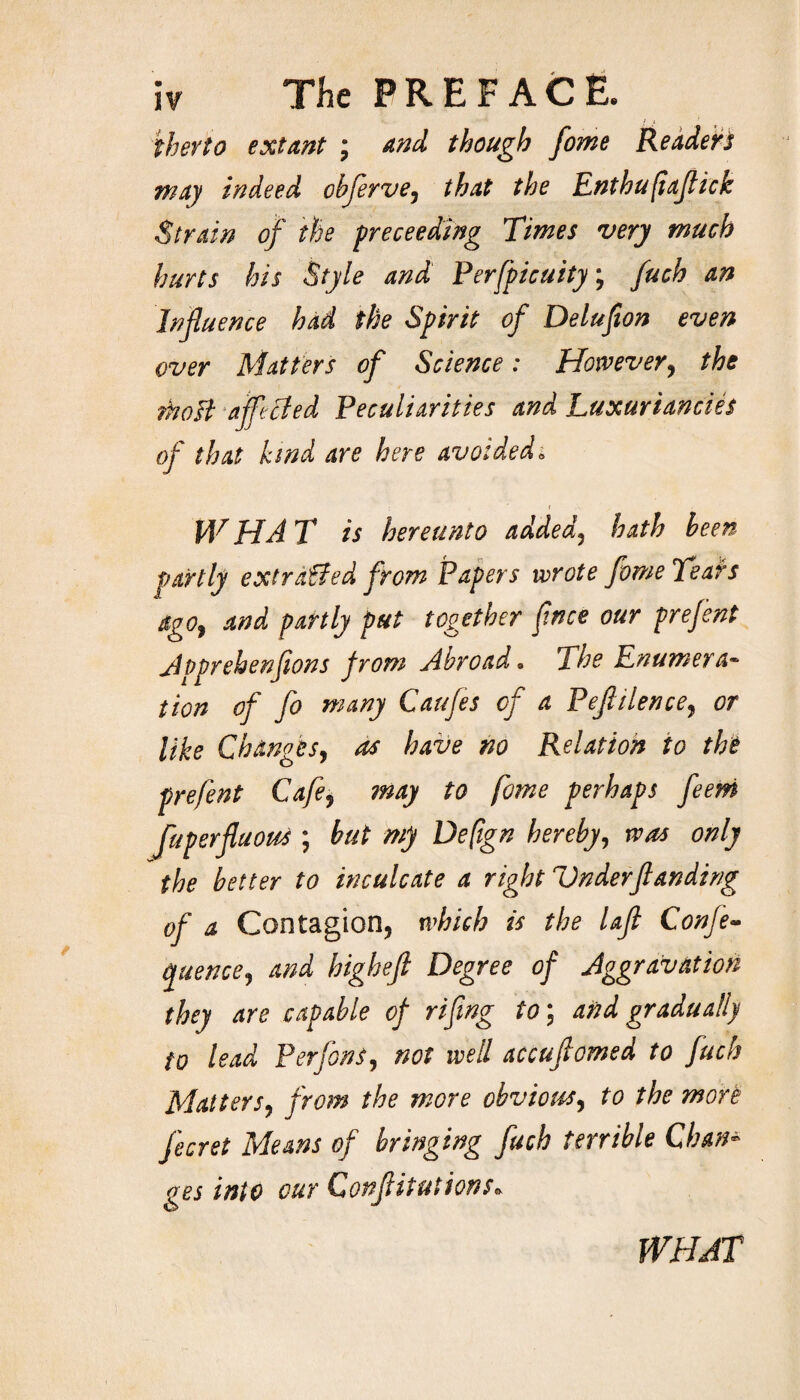 iv The PREFACE.
therto extant ; and though ſome Readers
may indeed obſerve, that the Enthuſiaſtick
Strain of the preceeding Times very much
hurts his Style and Perſpicuity; ſuch an
Influence had the Spirit of Deluſion even
over Matters of Science : However, the
moſt affected Peculiarities and Luxuriancies
of that kind are here avoided.
WHAT is hereunto added, hath been
partly extracted from Papers wrote ſome Years
ago, and partly put together ſince our preſent
Apprehenſions from Abroad. The Enumera-
tion of ſo many Cauſes of a Peſtilence, or
like Changes, as have no Relation to the
preſent Caſe, may to ſome perhaps ſeem
ſuperfluous ; but my Deſign hereby, was only
the better to inculcate a right Underſtanding
of a Contagion, which is the laſt Conſe-
quence, and higheſt Degree of Aggravation
they are capable of riſing to; and gradually
to lead Perſons, not well accuſtomed to ſuch
Matters, from the more obvious, to the more
ſecret Means of bringing ſuch terrible Chan-
ges into our Conſtitutions.
WHAT